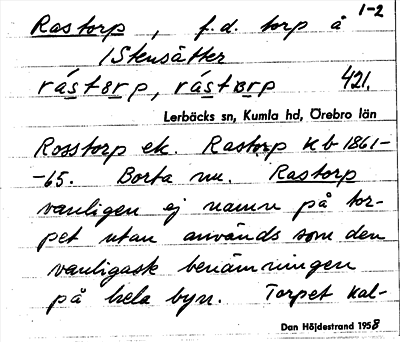 1-2
Rastorp, f.d. torp å
/Stensätter
rást𝈁rp, rást𝈁rp 421.
Lerbäcks sn, Kumla hd, Örebro län
Rosstorp ek. Rastorp Kb 1861-
-65. Borta nu. Rastorp
vanligen ej namn på tor-
pet utan används som den
vanligask benämningen
på hela byn. Torpet kal-
Dan Höjdestrand 1958